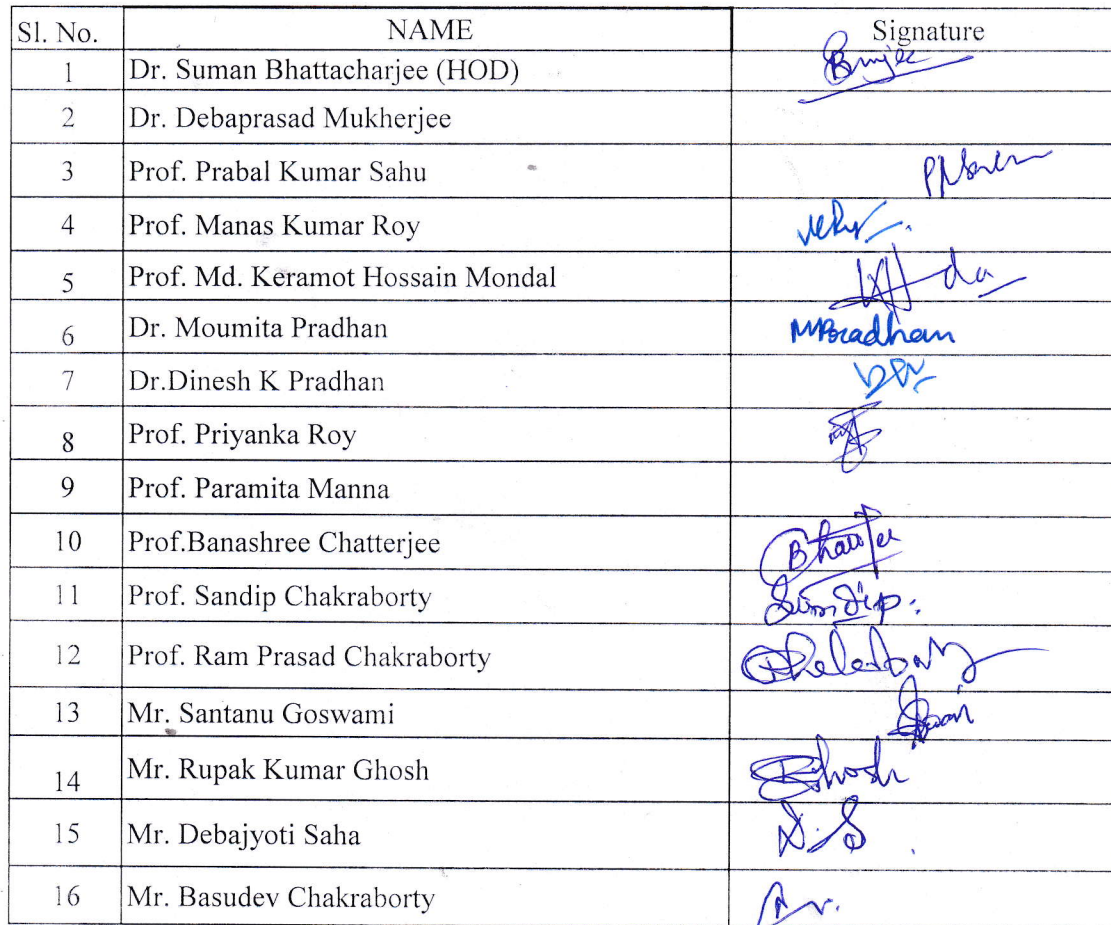 Sl. No. NAME Signature
1 Dr. Suman Bhattacharjee (HOD)
2 Dr. Debaprasad Mukherjee
3 Prof. Prabal Kumar Sahu
4 Prof. Manas Kumar Roy
5 Prof. Md. Keramot Hossain Mondal
6 Dr. Moumita Pradhan MPradhan
7 Dr.Dinesh K Pradhan
8 Prof. Priyanka Roy
9 Prof. Paramita Manna
10 Prof.Banashree Chatterjee
11 Prof. Sandip Chakraborty Sandip.
12 Prof. Ram Prasad Chakraborty
13 Mr. Santanu Goswami
14 Mr. Rupak Kumar Ghosh
15 Mr. Debajyoti Saha D.S
16 Mr. Basudev Chakraborty